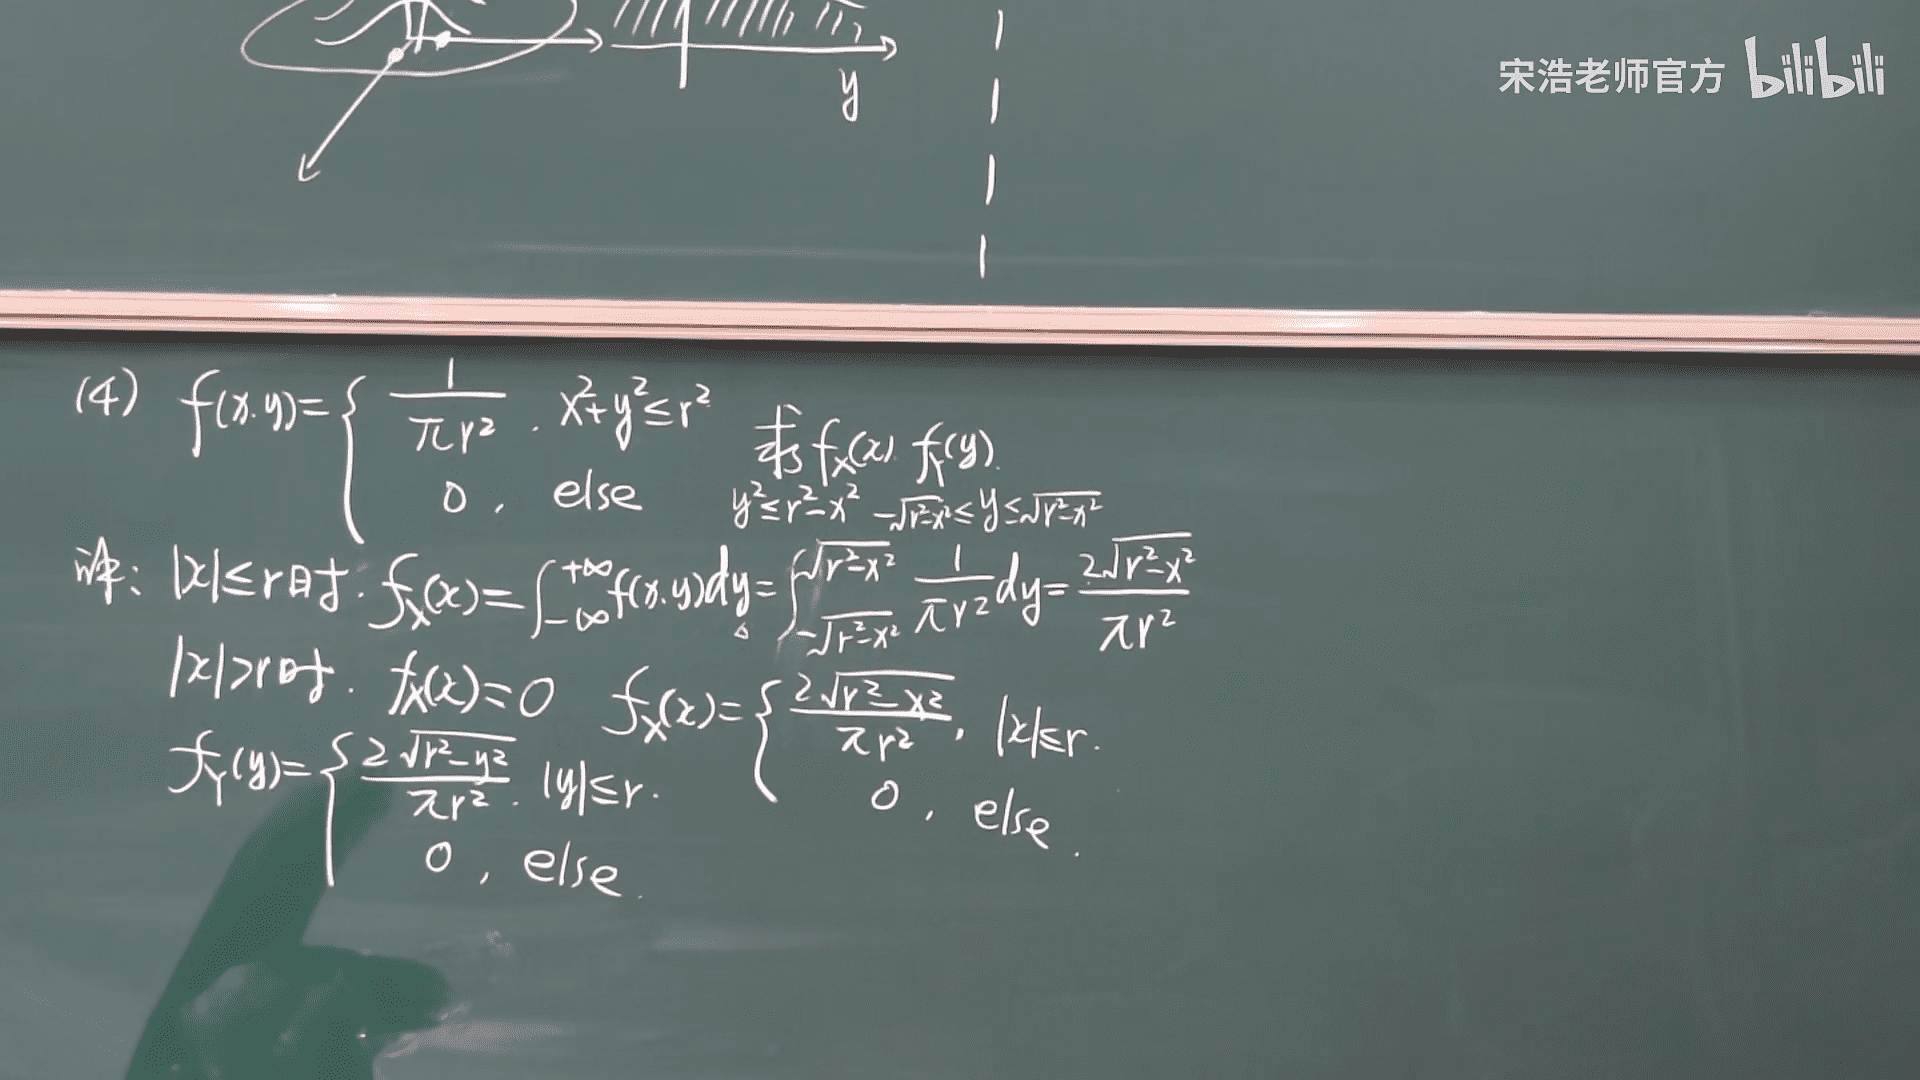 宋浩老师官方 bilibili
y
(4) f(x.y)={ 1/πr² . x²+y²≤r²
0 , else
求 f_X(x). f_Y(y).
y²≤r²-x² -√(r²-x²)≤y≤√(r²-x²)
解: |x|≤r时. f_X(x)=∫_{-∞}^{+∞} f(x.y)dy=∫_{-√(r²-x²)}^{√(r²-x²)} 1/πr² dy= 2√(r²-x²)/πr²
|x|>r时. f_X(x)=0 f_X(x)={ 2√(r²-x²)/πr² , |x|≤r.
0 , else.
f_Y(y)={ 2√(r²-y²)/πr² . |y|≤r.
0 , else.